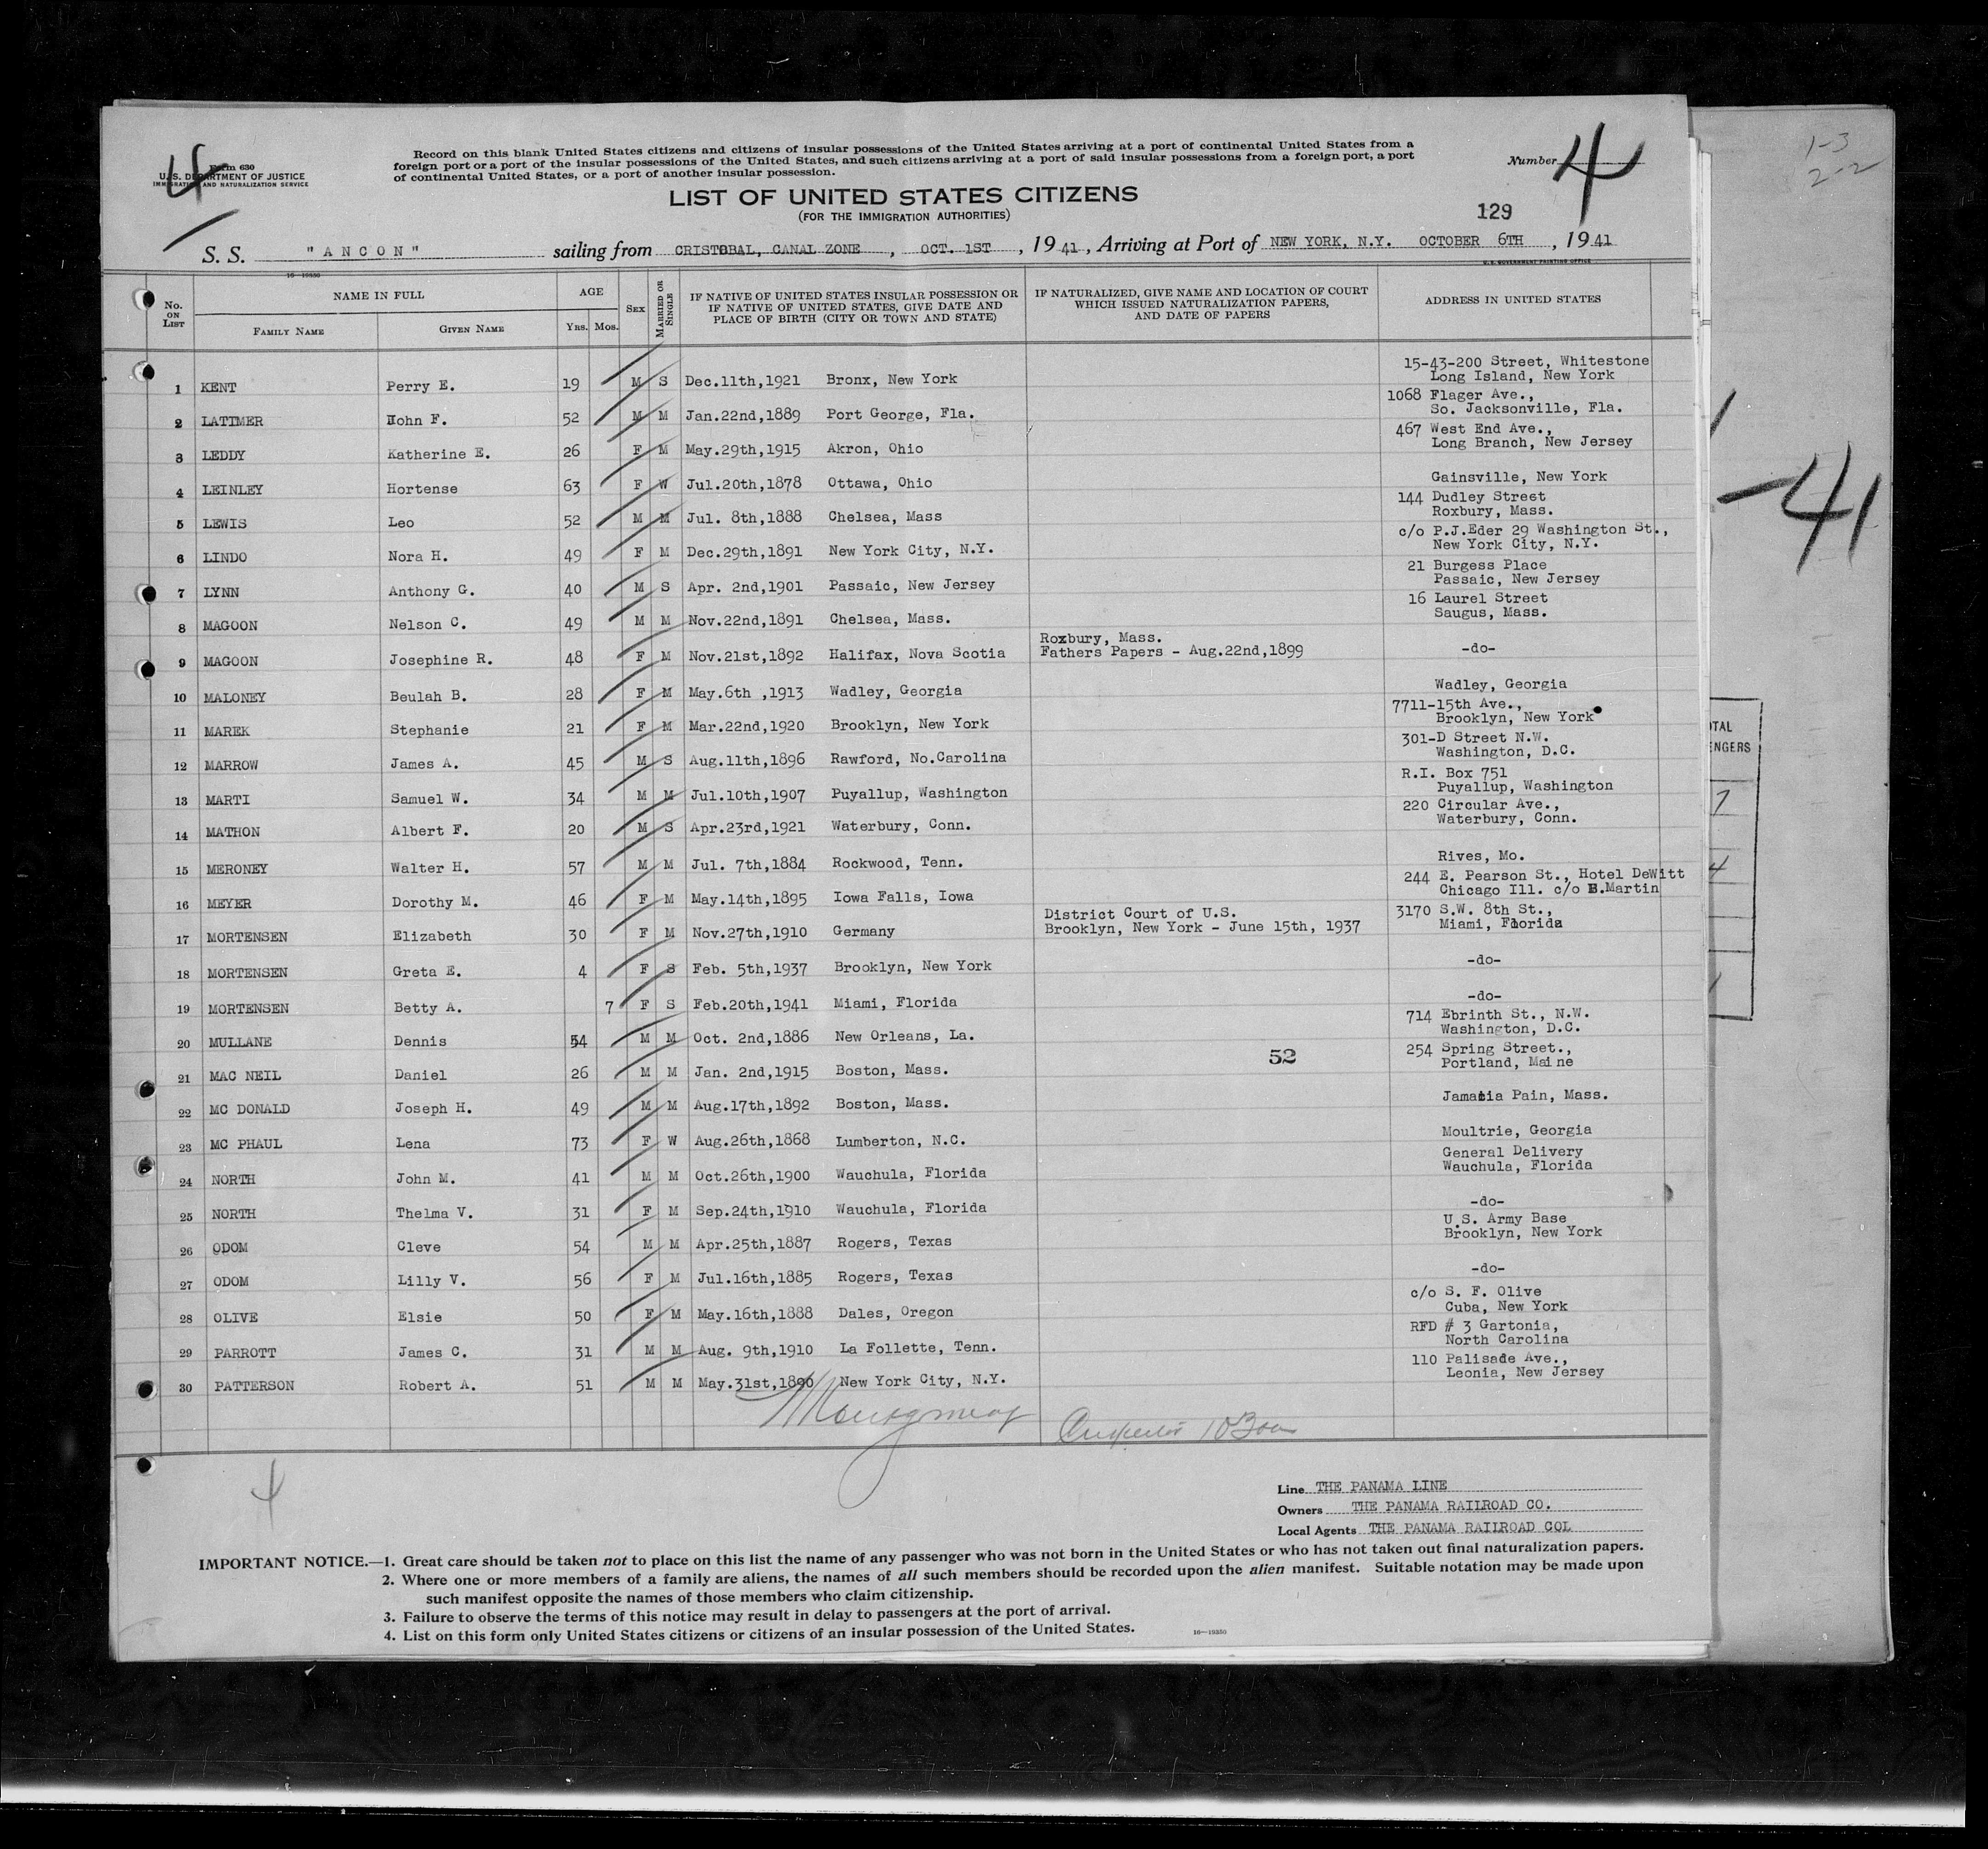 Form 630
U. S. DEPARTMENT OF JUSTICE
IMMIGRATION AND NATURALIZATION SERVICE
4
Record on this blank United States citizens and citizens of insular possessions of the United States arriving at a port of continental United States from a
foreign port or a port of the insular possessions of the United States, and such citizens arriving at a port of said insular possessions from a foreign port, a port
of continental United States, or a port of another insular possession.
Number 4
1-3
2-2
LIST OF UNITED STATES CITIZENS
(FOR THE IMMIGRATION AUTHORITIES)
129
S. S. "ANCON" sailing from CRISTOBAL, CANAL ZONE, OCT. 1ST, 1941, Arriving at Port of NEW YORK, N.Y. OCTOBER 6TH, 1941
16—19350 U. S. GOVERNMENT PRINTING OFFICE
No. ON LIST NAME IN FULL FAMILY NAME GIVEN NAME AGE Yrs. Mos. SEX MARRIED OR SINGLE IF NATIVE OF UNITED STATES INSULAR POSSESSION OR IF NATIVE OF UNITED STATES, GIVE DATE AND PLACE OF BIRTH (CITY OR TOWN AND STATE) IF NATURALIZED, GIVE NAME AND LOCATION OF COURT WHICH ISSUED NATURALIZATION PAPERS, AND DATE OF PAPERS ADDRESS IN UNITED STATES
1 KENT Perry E. 19 M S Dec.11th,1921 Bronx, New York 15-43-200 Street, Whitestone Long Island, New York
2 LATIMER John F. 52 M M Jan.22nd,1889 Port George, Fla. 1068 Flager Ave., So. Jacksonville, Fla.
3 LEDDY Katherine E. 26 F M May.29th,1915 Akron, Ohio 467 West End Ave., Long Branch, New Jersey
4 LEINLEY Hortense 63 F W Jul.20th,1878 Ottawa, Ohio Gainsville, New York
5 LEWIS Leo 52 M M Jul. 8th,1888 Chelsea, Mass 144 Dudley Street Roxbury, Mass.
6 LINDO Nora H. 49 F M Dec.29th,1891 New York City, N.Y. c/o P.J.Eder 29 Washington St., New York City, N.Y.
7 LYNN Anthony G. 40 M S Apr. 2nd,1901 Passaic, New Jersey 21 Burgess Place Passaic, New Jersey
8 MAGOON Nelson C. 49 M M Nov.22nd,1891 Chelsea, Mass. 16 Laurel Street Saugus, Mass.
9 MAGOON Josephine R. 48 F M Nov.21st,1892 Halifax, Nova Scotia Roxbury, Mass. Fathers Papers - Aug.22nd,1899 -do-
10 MALONEY Beulah B. 28 F M May.6th ,1913 Wadley, Georgia Wadley, Georgia
11 MAREK Stephanie 21 F M Mar.22nd,1920 Brooklyn, New York 7711-15th Ave., Brooklyn, New York
12 MARROW James A. 45 M S Aug.11th,1896 Rawford, No.Carolina 301-D Street N.W. Washington, D.C.
13 MARTI Samuel W. 34 M M Jul.10th,1907 Puyallup, Washington R.I. Box 751 Puyallup, Washington
14 MATHON Albert F. 20 M S Apr.23rd,1921 Waterbury, Conn. 220 Circular Ave., Waterbury, Conn.
15 MERONEY Walter H. 57 M M Jul. 7th,1884 Rockwood, Tenn. Rives, Mo.
16 MEYER Dorothy M. 46 F M May.14th,1895 Iowa Falls, Iowa 244 E. Pearson St., Hotel DeWitt Chicago Ill. c/o B.Martin
17 MORTENSEN Elizabeth 30 F M Nov.27th,1910 Germany District Court of U.S. Brooklyn, New York - June 15th, 1937 3170 S.W. 8th St., Miami, Florida
18 MORTENSEN Greta E. 4 F S Feb. 5th,1937 Brooklyn, New York -do-
19 MORTENSEN Betty A. 7 F S Feb.20th,1941 Miami, Florida -do-
20 MULLANE Dennis 54 M M Oct. 2nd,1886 New Orleans, La. 714 Ebrinth St., N.W. Washington, D.C.
52
21 MAC NEIL Daniel 26 M M Jan. 2nd,1915 Boston, Mass. 254 Spring Street., Portland, Maine
22 MC DONALD Joseph H. 49 M M Aug.17th,1892 Boston, Mass. Pain, Mass.
23 MC PHAUL Lena 73 F W Aug.26th,1868 Lumberton, N.C. Moultrie, Georgia
24 NORTH John M. 41 M M Oct.26th,1900 Wauchula, Florida General Delivery Wauchula, Florida
25 NORTH Thelma V. 31 F M Sep.24th,1910 Wauchula, Florida -do-
26 ODOM Cleve 54 M M Apr.25th,1887 Rogers, Texas U.S. Army Base Brooklyn, New York
27 ODOM Lilly V. 56 F M Jul.16th,1885 Rogers, Texas -do-
28 OLIVE Elsie 50 F M May.16th,1888 Dales, Oregon c/o S. F. Olive Cuba, New York
29 PARROTT James C. 31 M M Aug. 9th,1910 La Follette, Tenn. RFD # 3 Gartonia, North Carolina
30 PATTERSON Robert A. 51 M M May.31st,1890 New York City, N.Y. 110 Palisade Ave., Leonia, New Jersey
4
-41
OTAL
ENGERS
7
4
1
Line THE PANAMA LINE
Owners THE PANAMA RAILROAD CO.
Local Agents THE PANAMA RAILROAD COL
IMPORTANT NOTICE.—1. Great care should be taken not to place on this list the name of any passenger who was not born in the United States or who has not taken out final naturalization papers.
2. Where one or more members of a family are aliens, the names of all such members should be recorded upon the alien manifest. Suitable notation may be made upon
such manifest opposite the names of those members who claim citizenship.
3. Failure to observe the terms of this notice may result in delay to passengers at the port of arrival.
4. List on this form only United States citizens or citizens of an insular possession of the United States.
16—19350